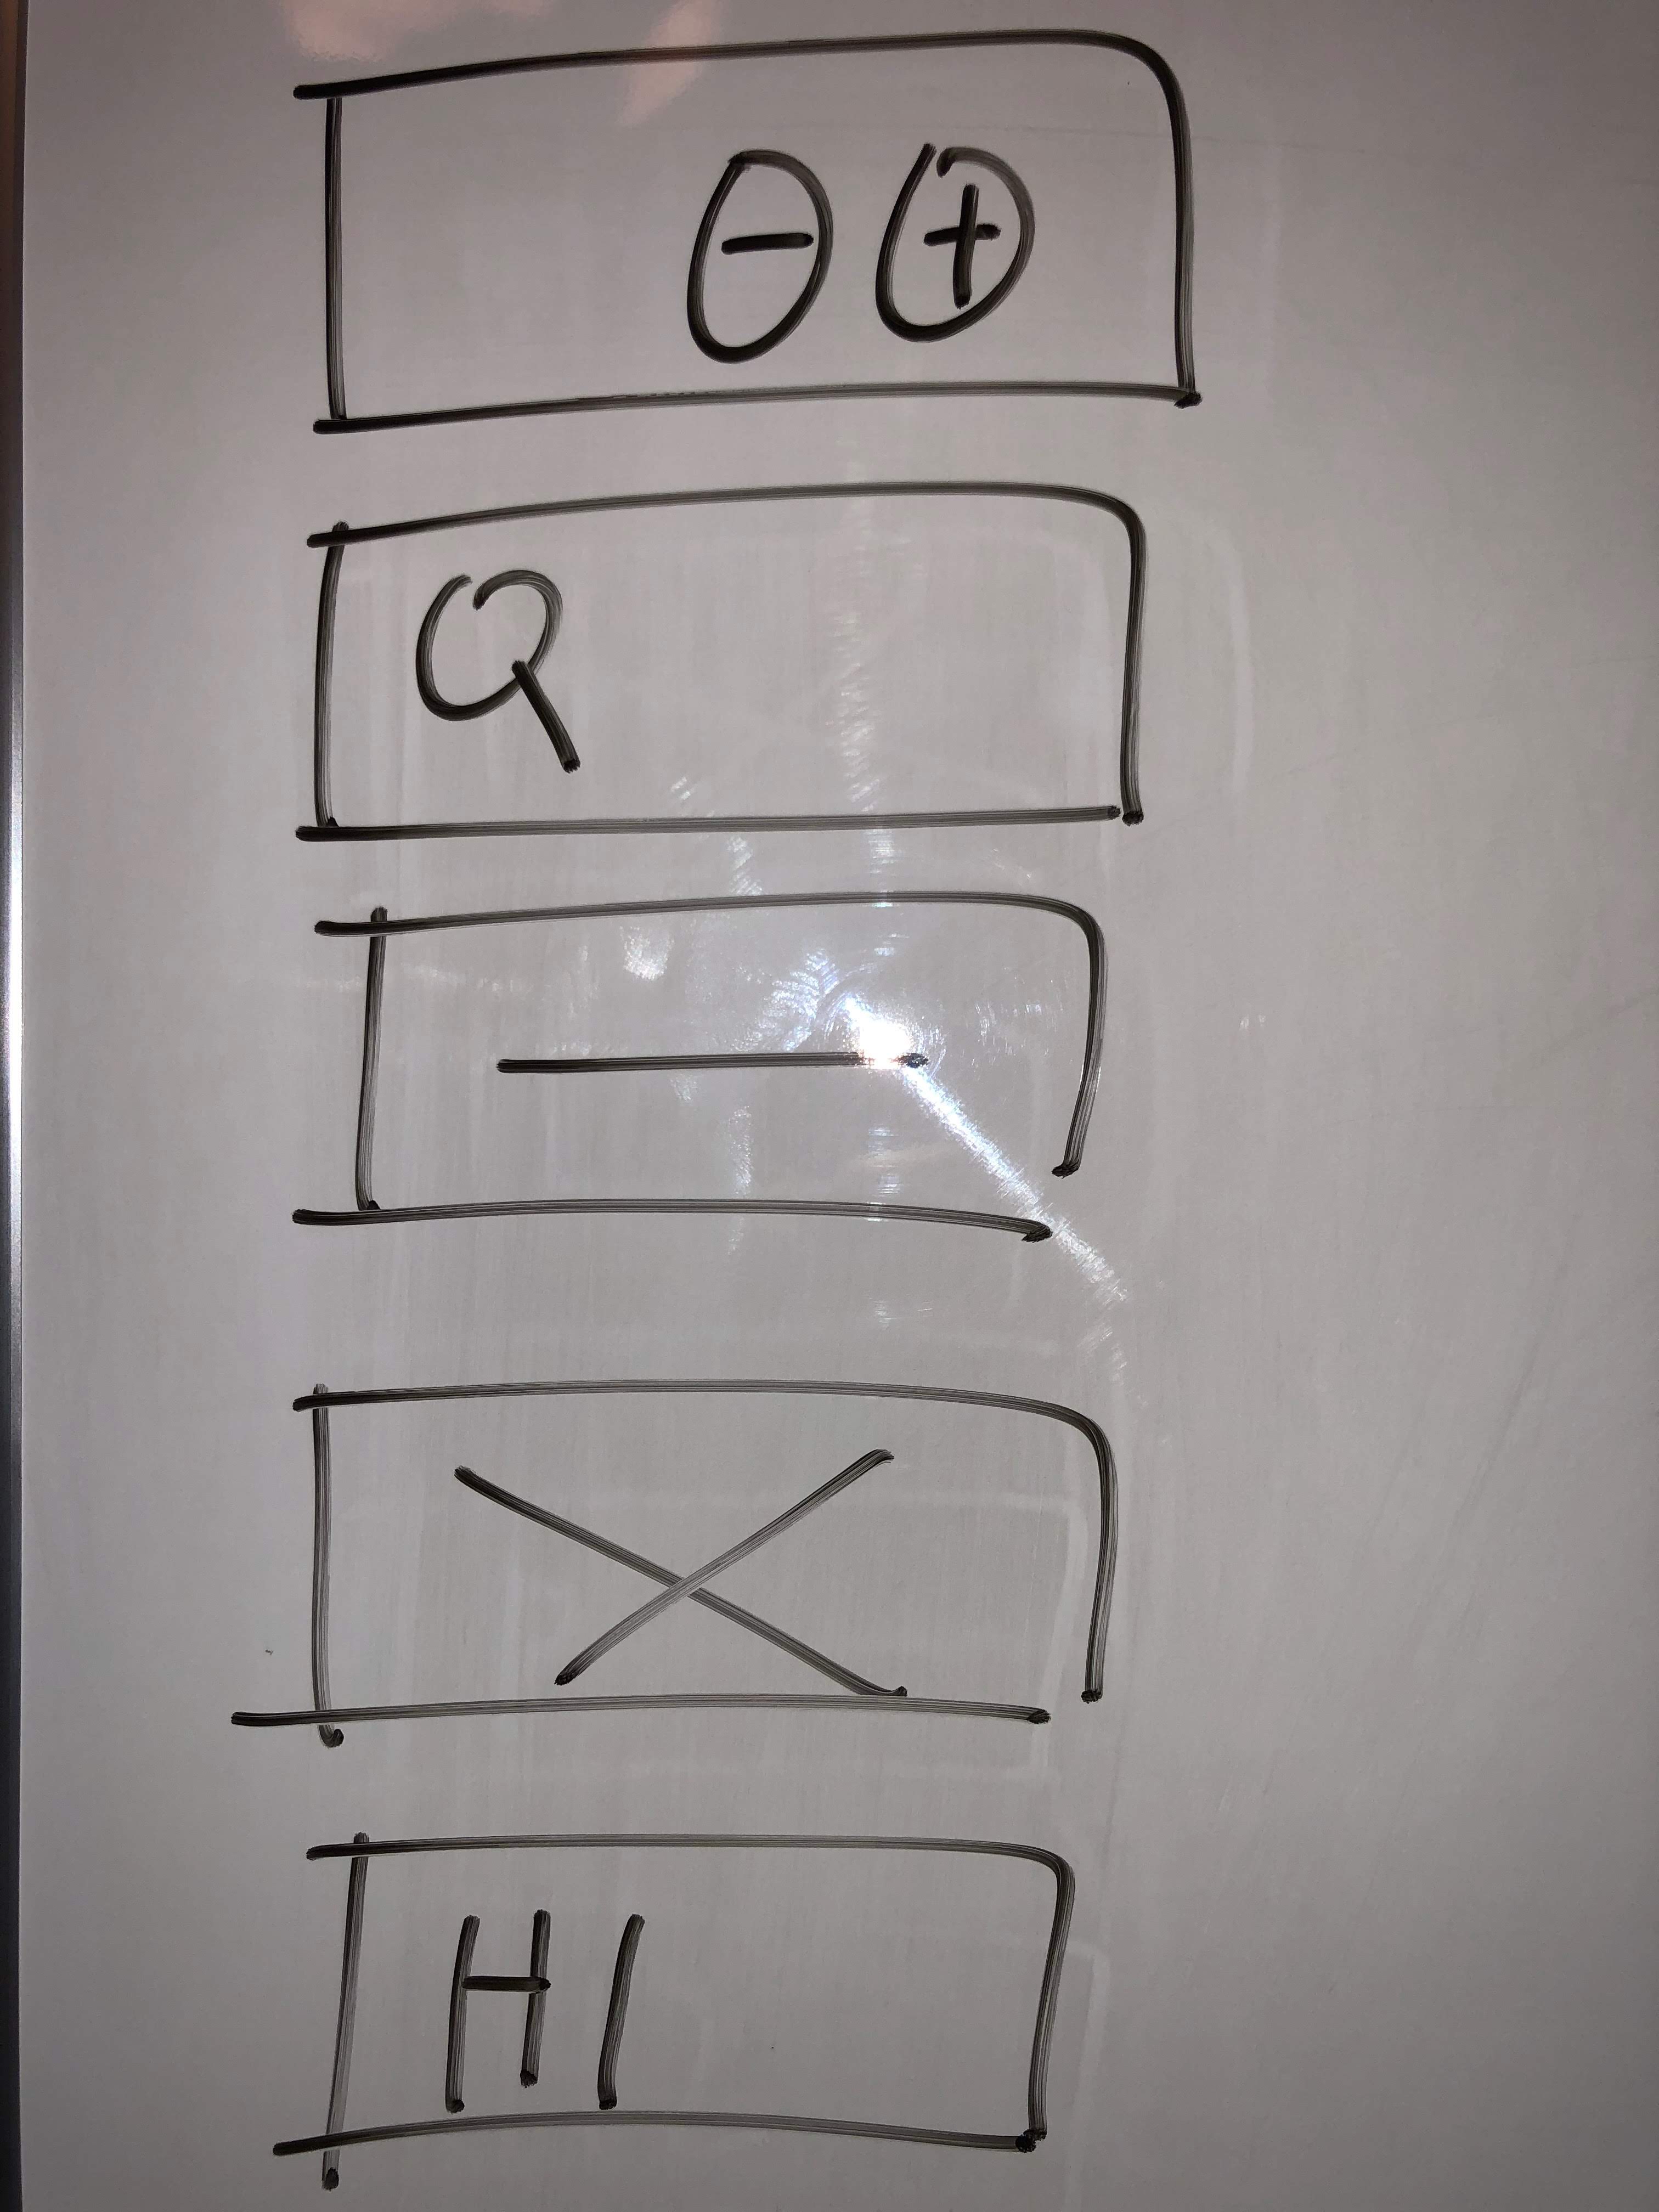 - +
Q
—
X
HI